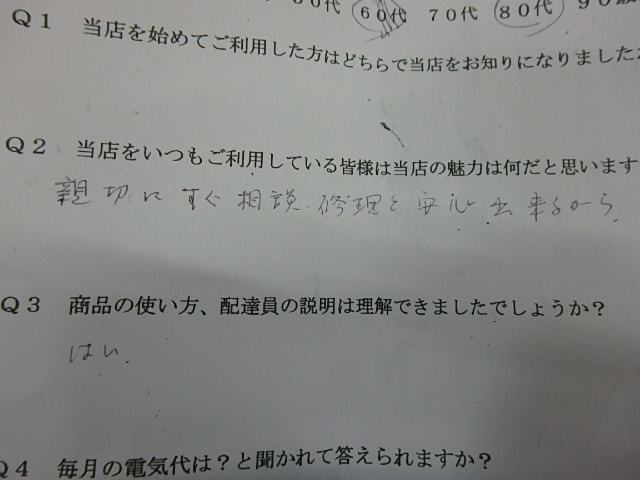 60代 70代 80代
Q1 当店を始めてご利用した方はどちらで当店をお知りになりました
Q2 当店をいつもご利用している皆様は当店の魅力は何だと思います
親切にすぐ相談.修理と安心出来るから
Q3 商品の使い方、配達員の説明は理解できましたでしょうか？
はい.
Q4 毎月の電気代は？と聞かれて答えられますか？